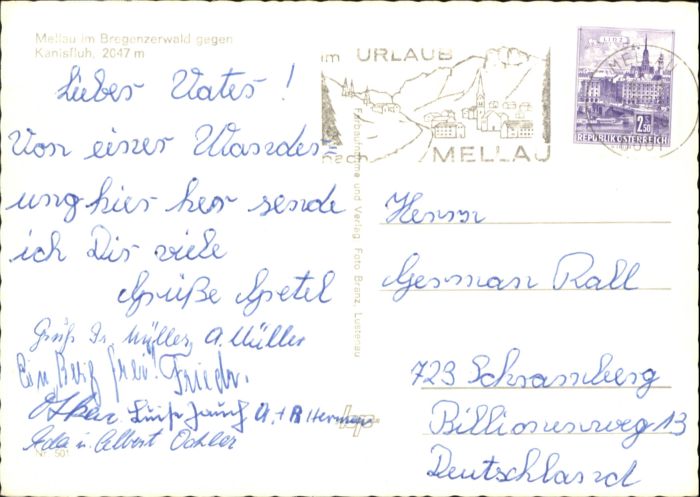 Mellau im Bregenzerwald gegen
Kanisfluh, 2047 m
Lieber Vater!
Von einer Wander-
ung hier her sende
ich Dir viele
Grüße Gretel
Gruß Fr. Müller, A. Müller
Ein Berg frei! Frieder.
Oskar Luise Jauch A. + R Hermann
Ada u. Albert Oehler
Nr. 501
Farbaufnahme und Verlag Foto Branz, Lustenau
im URLAUB
nach
MELLAU
LINZ
2.50
REPUBLIK ÖSTERREICH
Herrn
German Rall
723 Schramberg
Billionenweg 13
Deutschland